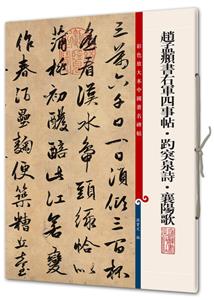 趙孟頫書右軍四事帖·趵突泉詩·襄陽歌
彩色放大本中國著名碑帖
孫寶文 編
三萬六千日一日須傾三百杯
遙看漢水鴨頭綠恰似
蒲初醱醅此江若變
作春酒壘麴便築糟丘臺